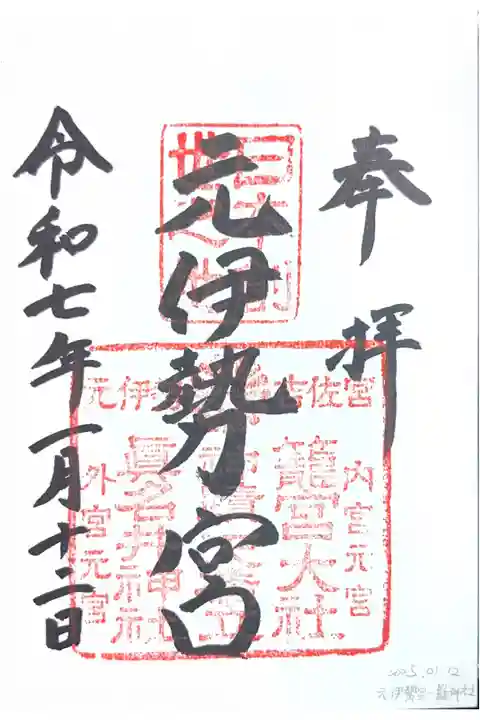 奉拝
元伊勢宮
令和七年一月十二日
吉佐宮
内宮元宮
籠宮大社
元伊勢
眞名井神社
外宮元宮
2025.01.12